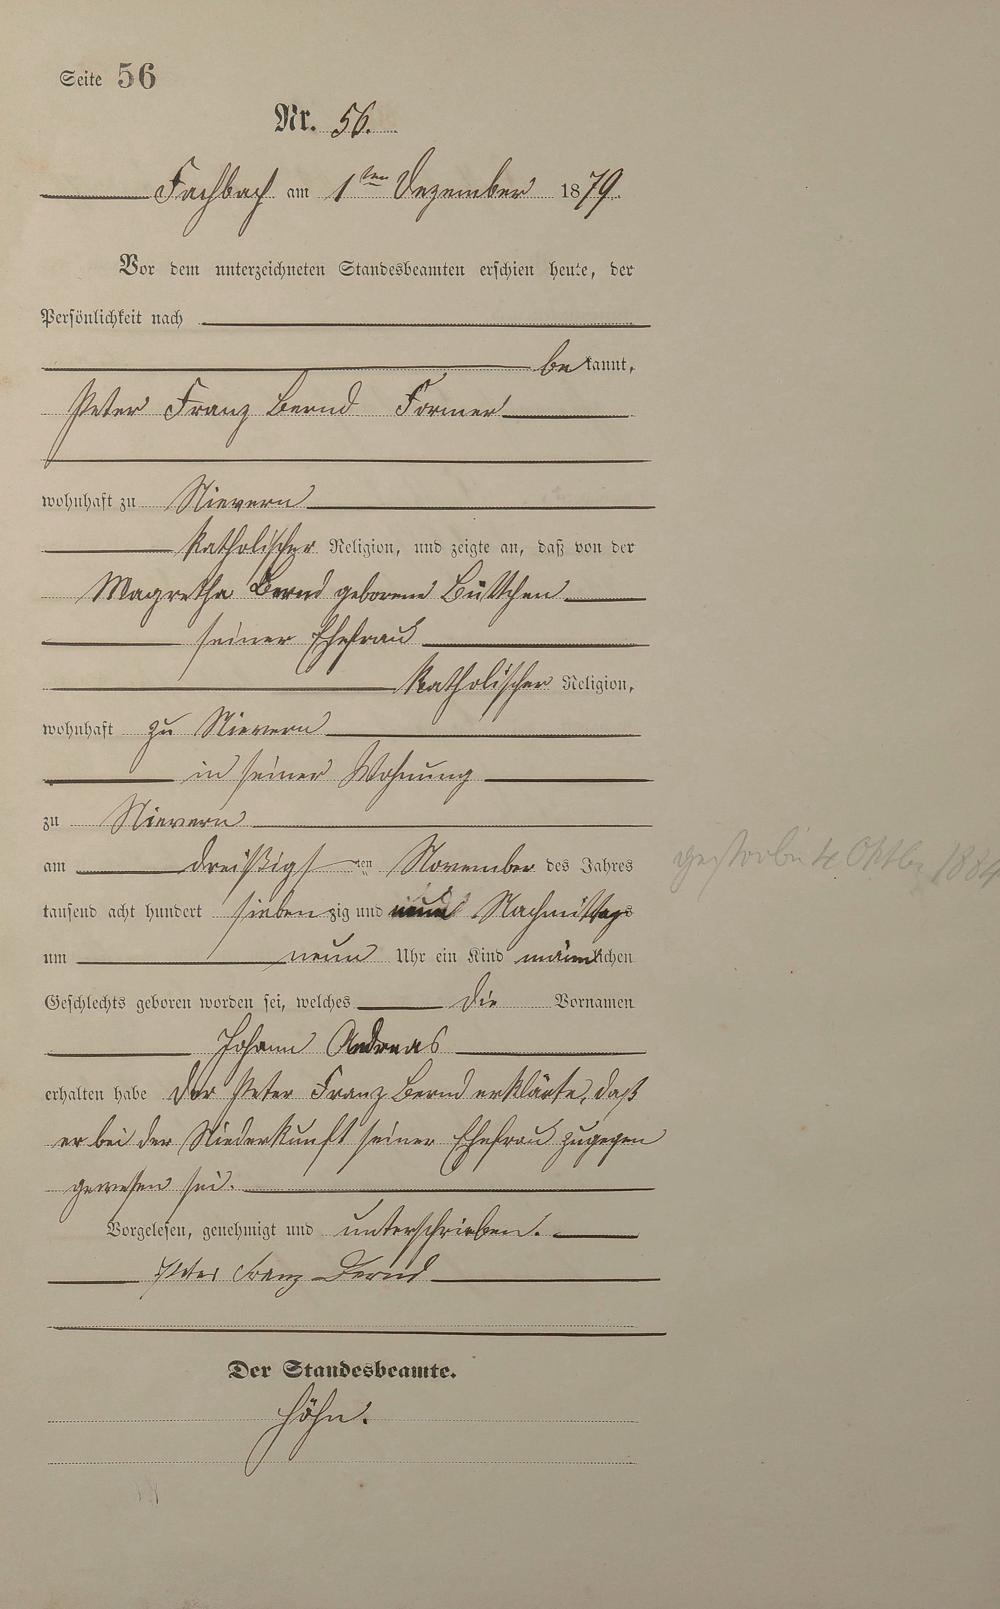 Seite 56
Nr. 56.
Fachbach am 1ten Dezember 1879.
Vor dem unterzeichneten Standesbeamten erschien heute, der
Persönlichkeit nach
bekannt,
Peter Franz Bernd Former
wohnhaft zu Nievern
katholischer Religion, und zeigte an, daß von der
Magretha Bernd geborene
seiner Ehefrau
katholischer Religion,
wohnhaft zu Nievern
in seiner Wohnung
zu Nievern
am dreißigsten November des Jahres
tausend acht hundert siebenzig und neun Nachmittags
um neun Uhr ein Kind männlichen
Geschlechts geboren worden sei, welches die Vornamen
Johann Andreas
erhalten habe Der Peter Franz Bernd erklärte, daß
er bei der Niederkunft seiner Ehefrau zugegen
gewesen sei.
Vorgelesen, genehmigt und unterschrieben.
Peter Franz Bernd
Der Standesbeamte.
Höhn.
gestorben 4 Oktbr 1884